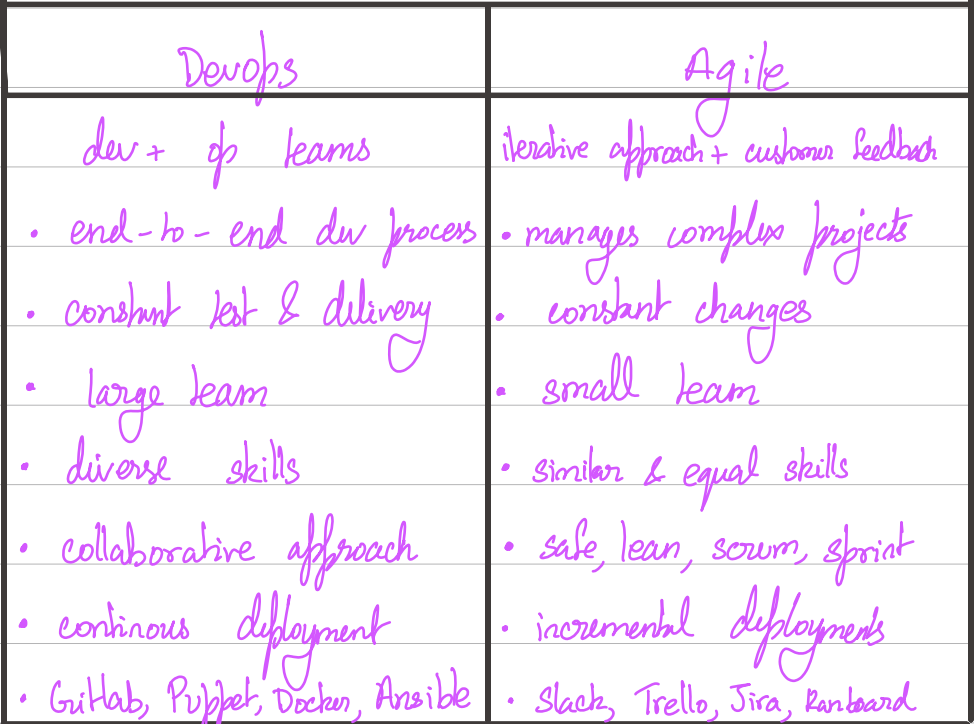 Devops
Agile
dev + op teams
iterative approach + customer feedback
• end-to-end dev process
• manages complex projects
• constant test & delivery
• constant changes
• large team
• small team
• diverse skills
• similar & equal skills
• collaborative approach
• safe, lean, scrum, sprint
• continous deployment
• incremental deployments
• GitHab, Puppet, Docker, Ansible
• Slack, Trello, Jira, Kanboard